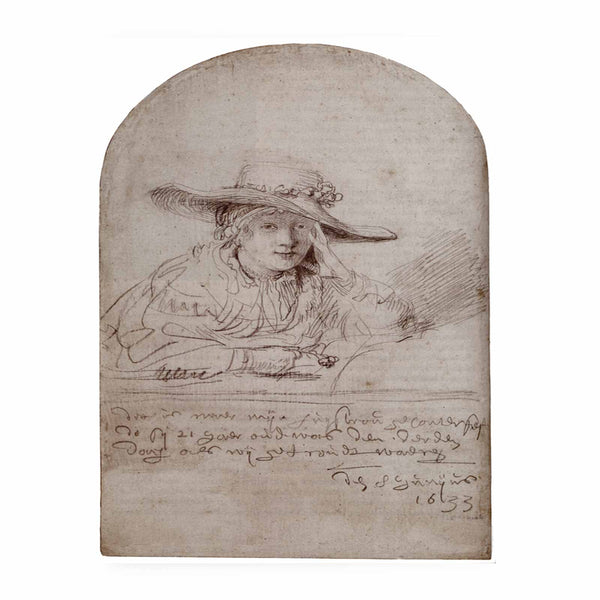 dit is naer mijn huijsvrou geconterfeyt
do sij 21 jaer oud was den derden
dach als wij getroudt waeren
den 8 junijus
1633